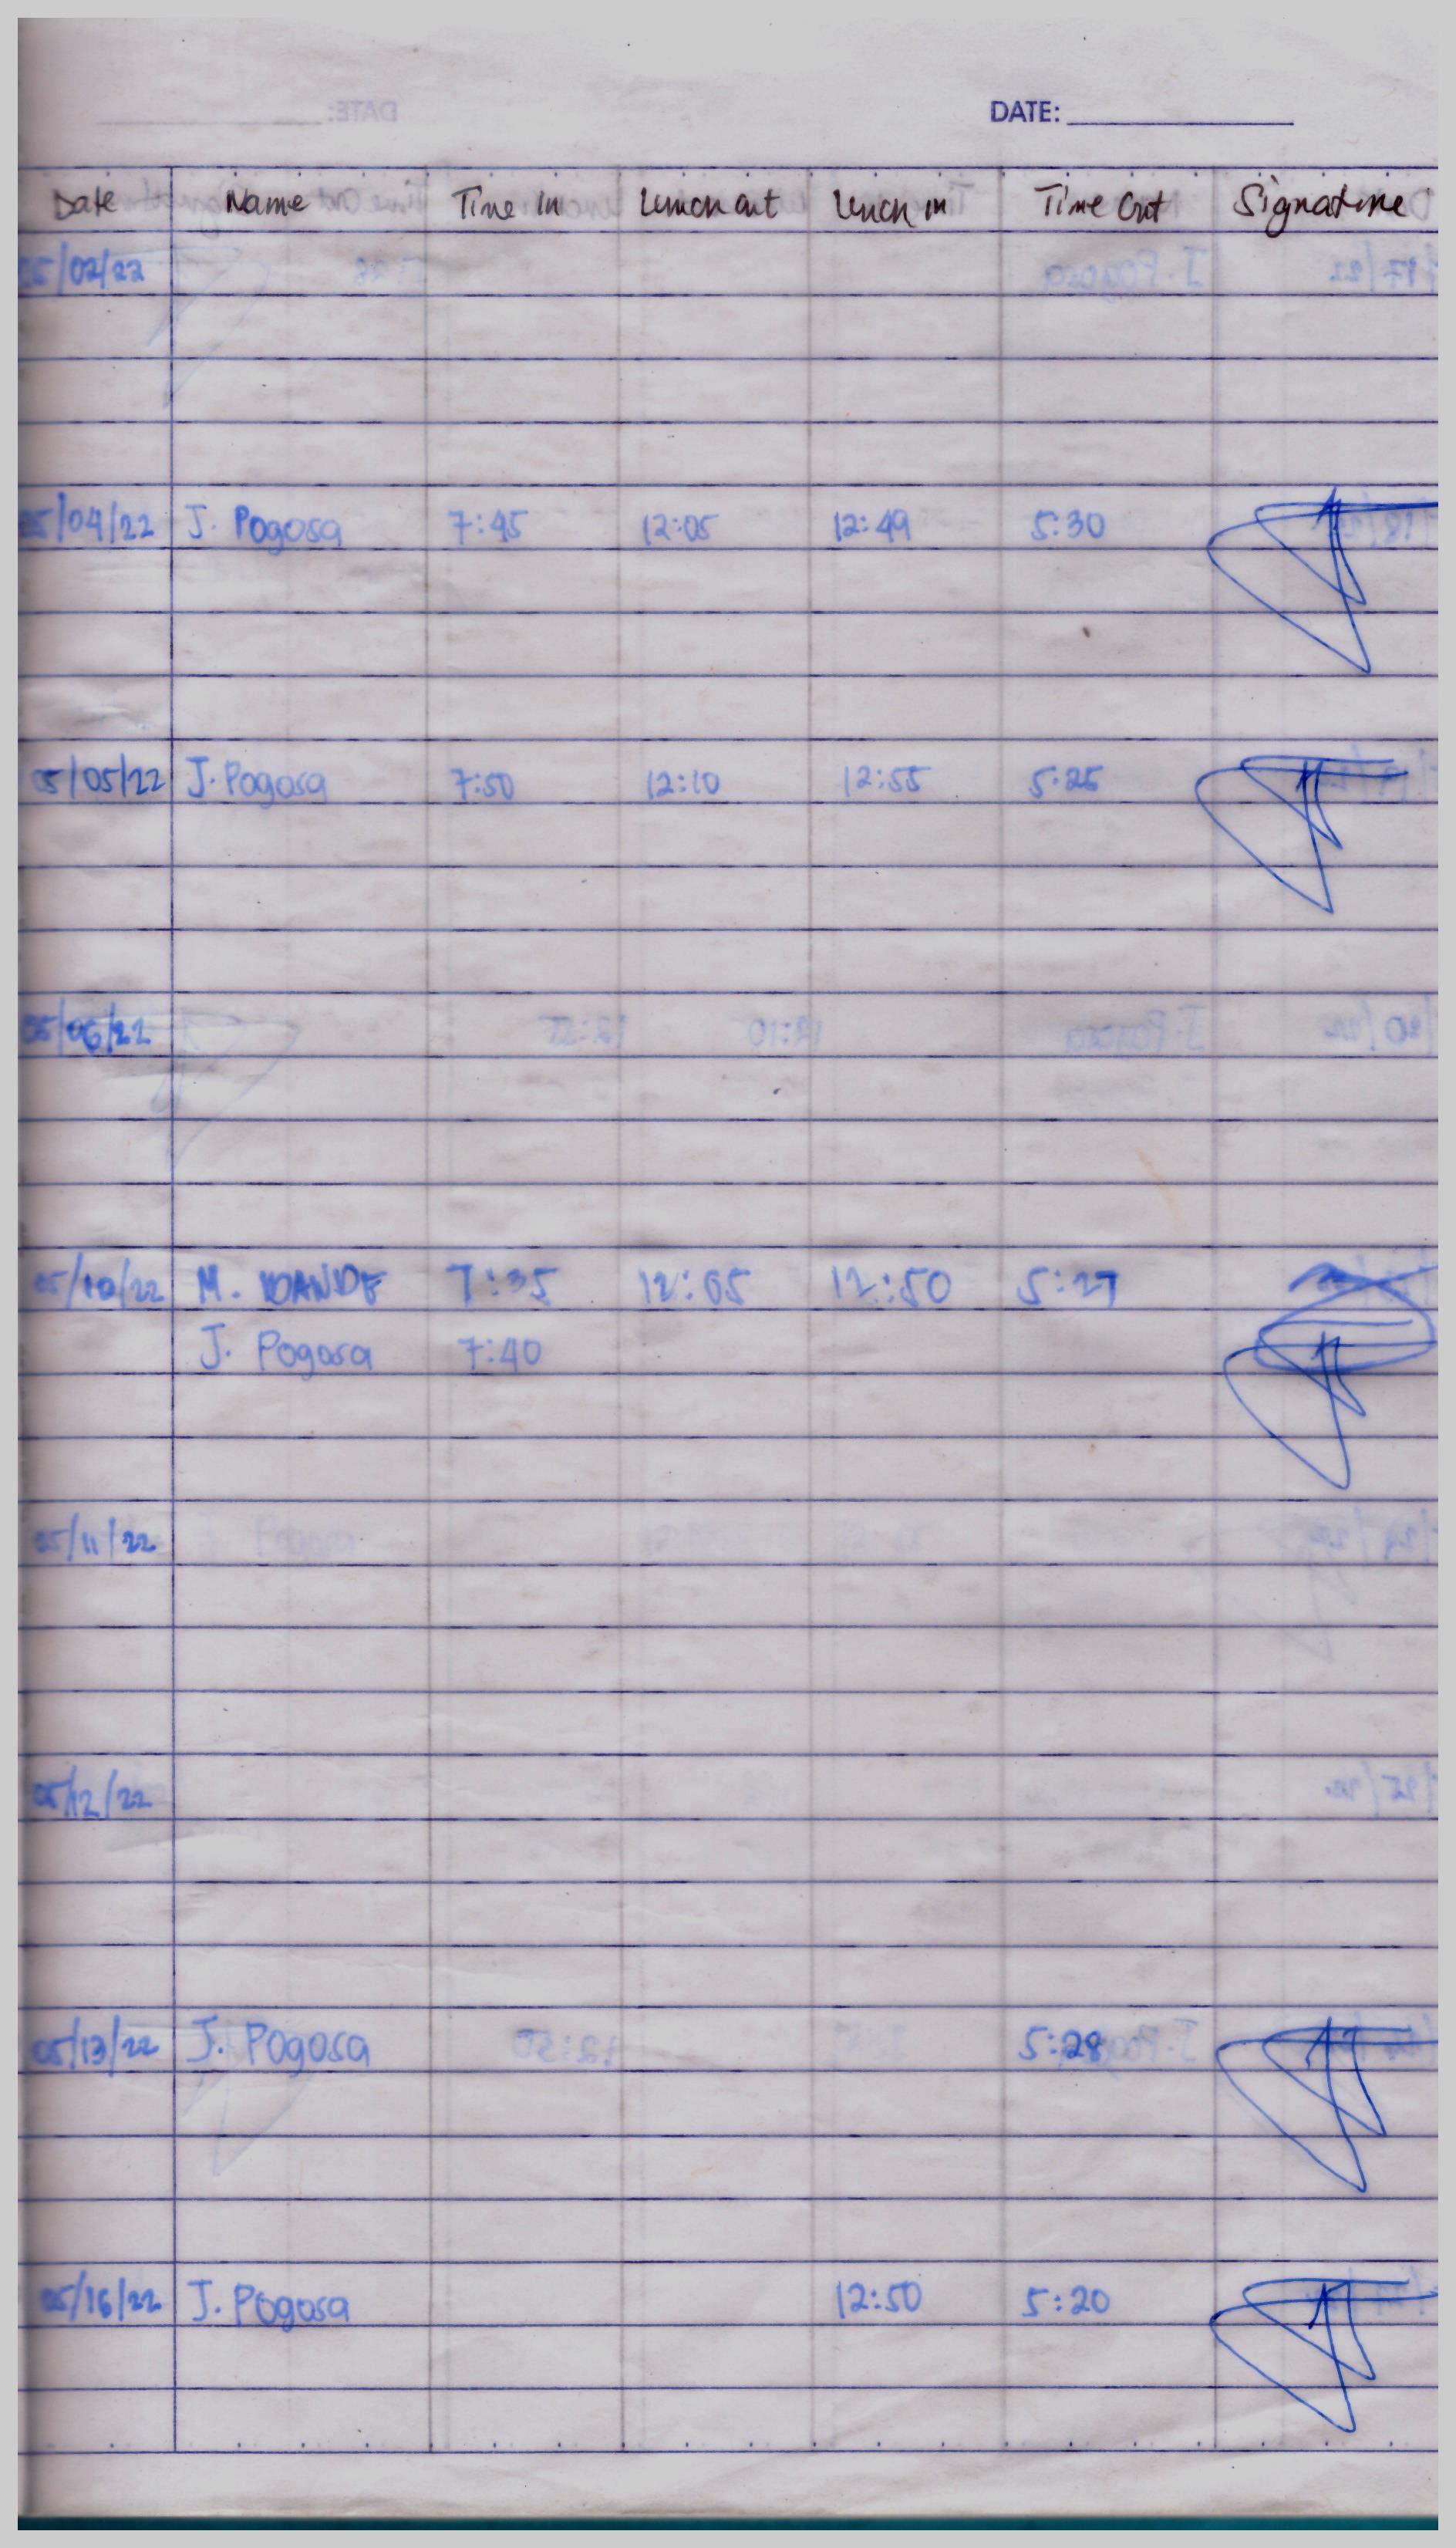 DATE:
Date Name Time In Lunch out Lunch in Time Out Signature
05/02/22
05/04/22 J. Pogosa 7:45 12:05 12:49 5:30
05/05/22 J. Pogosa 7:50 12:10 12:55 5:25
05/06/22
05/10/22 M. 7:35 12:05 12:50 5:27
J. Pogosa 7:40
05/11/22
05/12/22
05/13/22 J. Pogosa 5:28
05/16/22 J. Pogosa 12:50 5:20